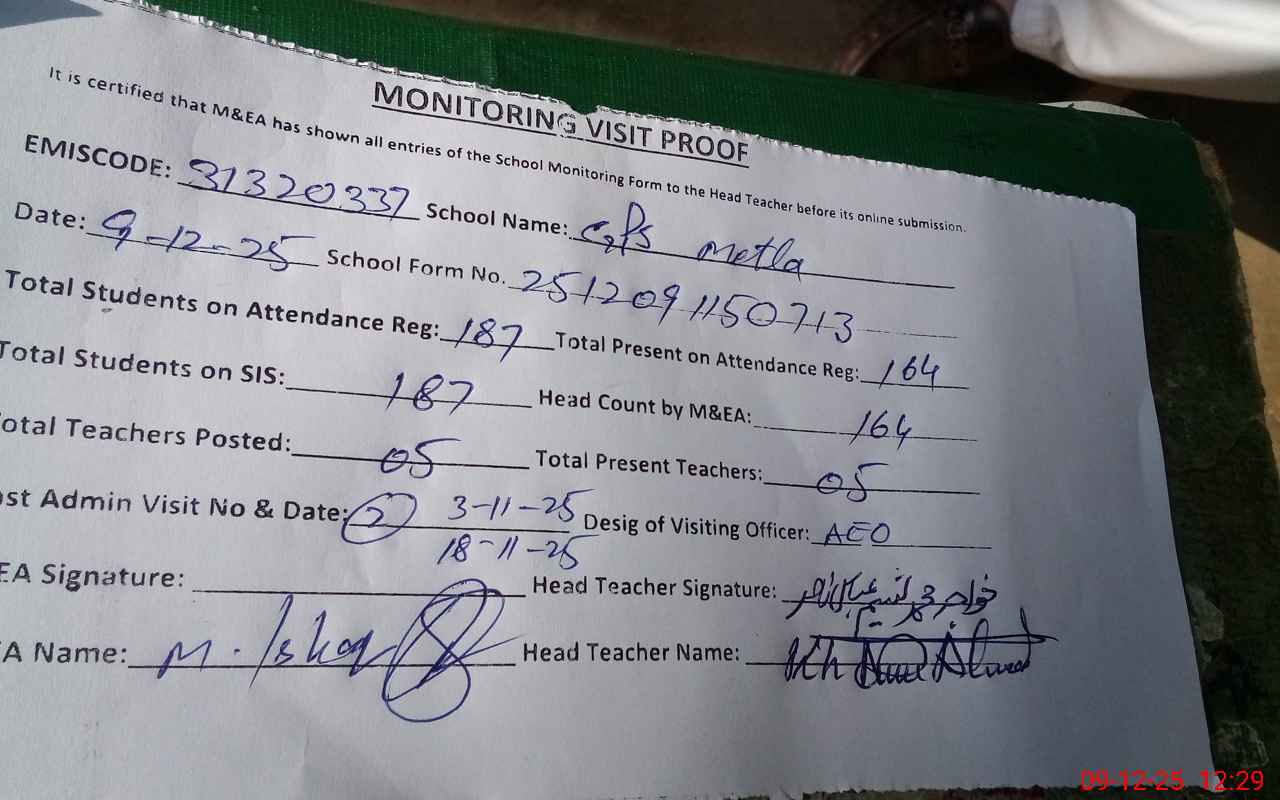 MONITORING VISIT PROOF
It is certified that M&EA has shown all entries of the School Monitoring Form to the Head Teacher before its online submission.
EMISCODE: 31320337 School Name: GPS Metla
Date: 9-12-25 School Form No. 2512091150713
Total Students on Attendance Reg: 187 Total Present on Attendance Reg: 164
Total Students on SIS: 187 Head Count by M&EA: 164
otal Teachers Posted: 05 Total Present Teachers: 05
st Admin Visit No & Date: 2 3-11-25 Desig of Visiting Officer: AEO
18-11-25
EA Signature: Head Teacher Signature:
A Name: M. Ishaq Head Teacher Name: Kh Ahmad
09-12-25 12:29